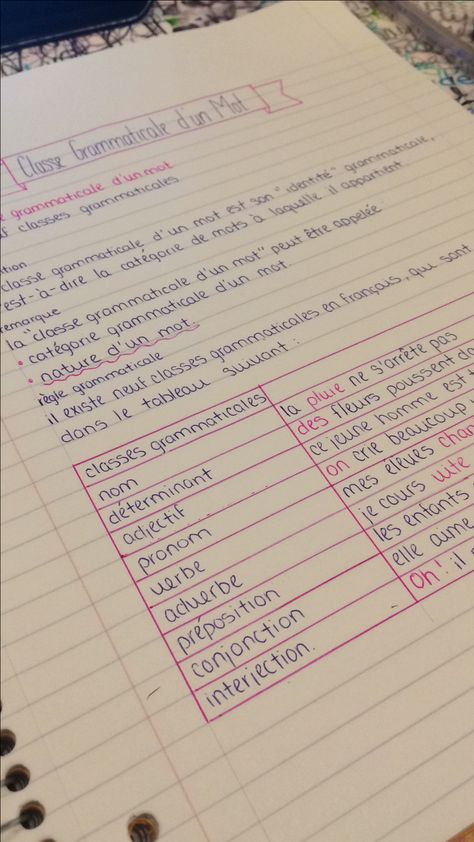 Classe Grammaticale d'un Mot
grammaticale d'un mot
classes grammaticales
classe grammaticale d'un mot est son "identité" grammaticale,
est-à-dire la catégorie de mots à laquelle il appartient
remarque
la "classe grammaticale d'un mot" peut être appelée:
• catégorie grammaticale d'un mot.
• nature d'un mot.
règle grammaticale
il existe neuf classes grammaticales en français, qui sont
dans le tableau suivant :
classes grammaticales
nom la pluie ne s'arrête pas
déterminant des fleurs poussent
adjectif ce jeune homme est
pronom on crie beaucoup
verbe mes élèves
adverbe je cours vite
préposition les enfants
conjonction elle aime
interjection. Oh! il